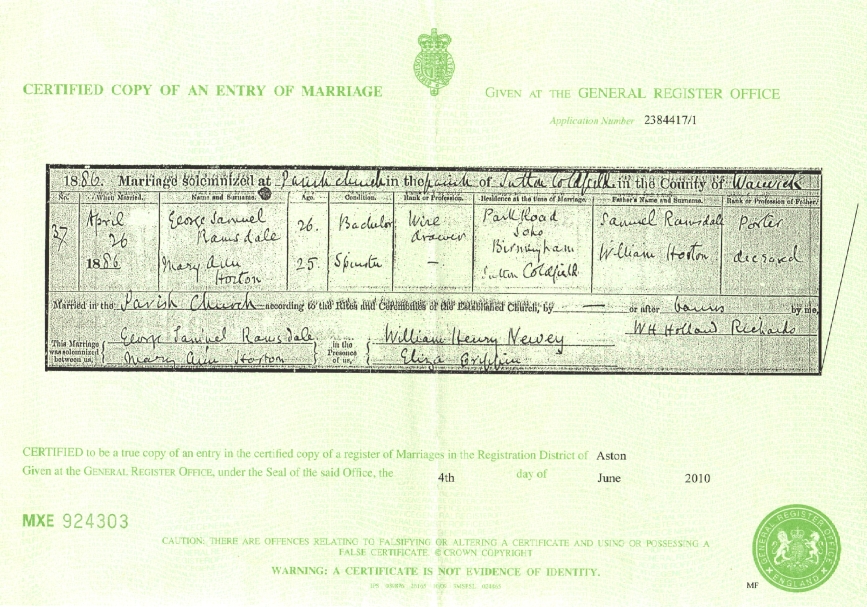 CERTIFIED COPY OF AN ENTRY OF MARRIAGE
GIVEN AT THE GENERAL REGISTER OFFICE
Application Number 2384417/1
1886. Marriage solemnized at Parish church in the parish of Sutton Coldfield in the County of Warwick
No. When Married. Name and Surname. Age. Condition. Rank or Profession. Residence at the time of Marriage. Father's Name and Surname. Rank or Profession of Father.
37 April 26 1886
George Samuel Ramsdale 26. Bachelor Wire drawer Park Road Soho Birmingham Samuel Ramsdale Porter
Mary Ann Horton 25. Spinster — Sutton Coldfield William Horton deceased
Married in the Parish Church according to the Rites and Ceremonies of the Established Church, by — or after banns by me,
W H Holland Richards
This Marriage was solemnized between us, George Samuel Ramsdale Mary Ann Horton in the Presence of us, William Henry Newey Eliza Griffin
CERTIFIED to be a true copy of an entry in the certified copy of a register of Marriages in the Registration District of Aston
Given at the GENERAL REGISTER OFFICE, under the Seal of the said Office, the 4th day of June 2010
MXE 924303
CAUTION: THERE ARE OFFENCES RELATING TO FALSIFYING OR ALTERING A CERTIFICATE AND USING OR POSSESSING A
FALSE CERTIFICATE. © CROWN COPYRIGHT
WARNING: A CERTIFICATE IS NOT EVIDENCE OF IDENTITY.
GENERAL REGISTER OFFICE
ENGLAND
MF